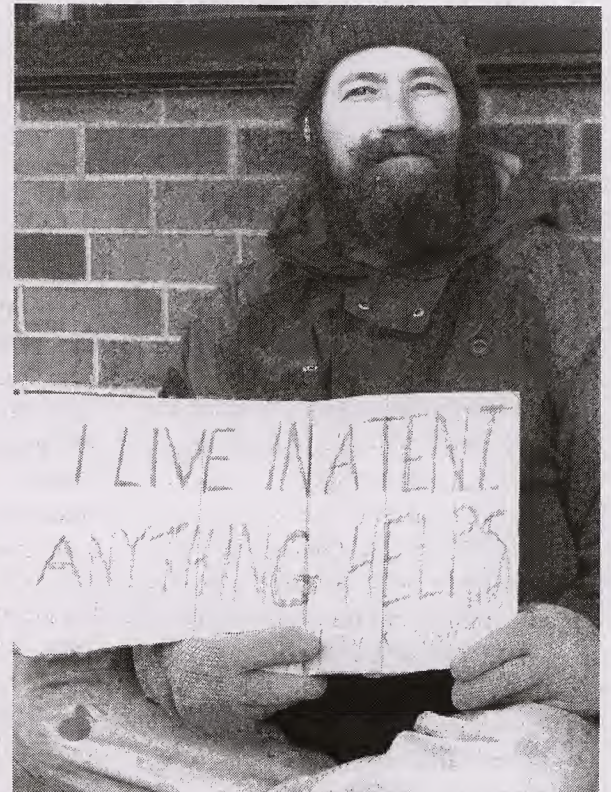 I LIVE IN A TENT
ANYTHING HELPS